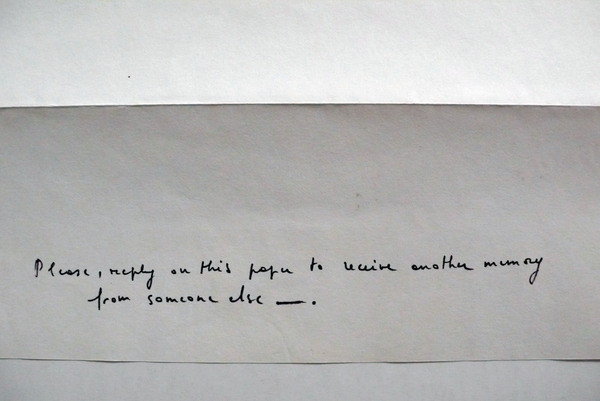 Please, reply on this paper to receive another memory
from someone else —.